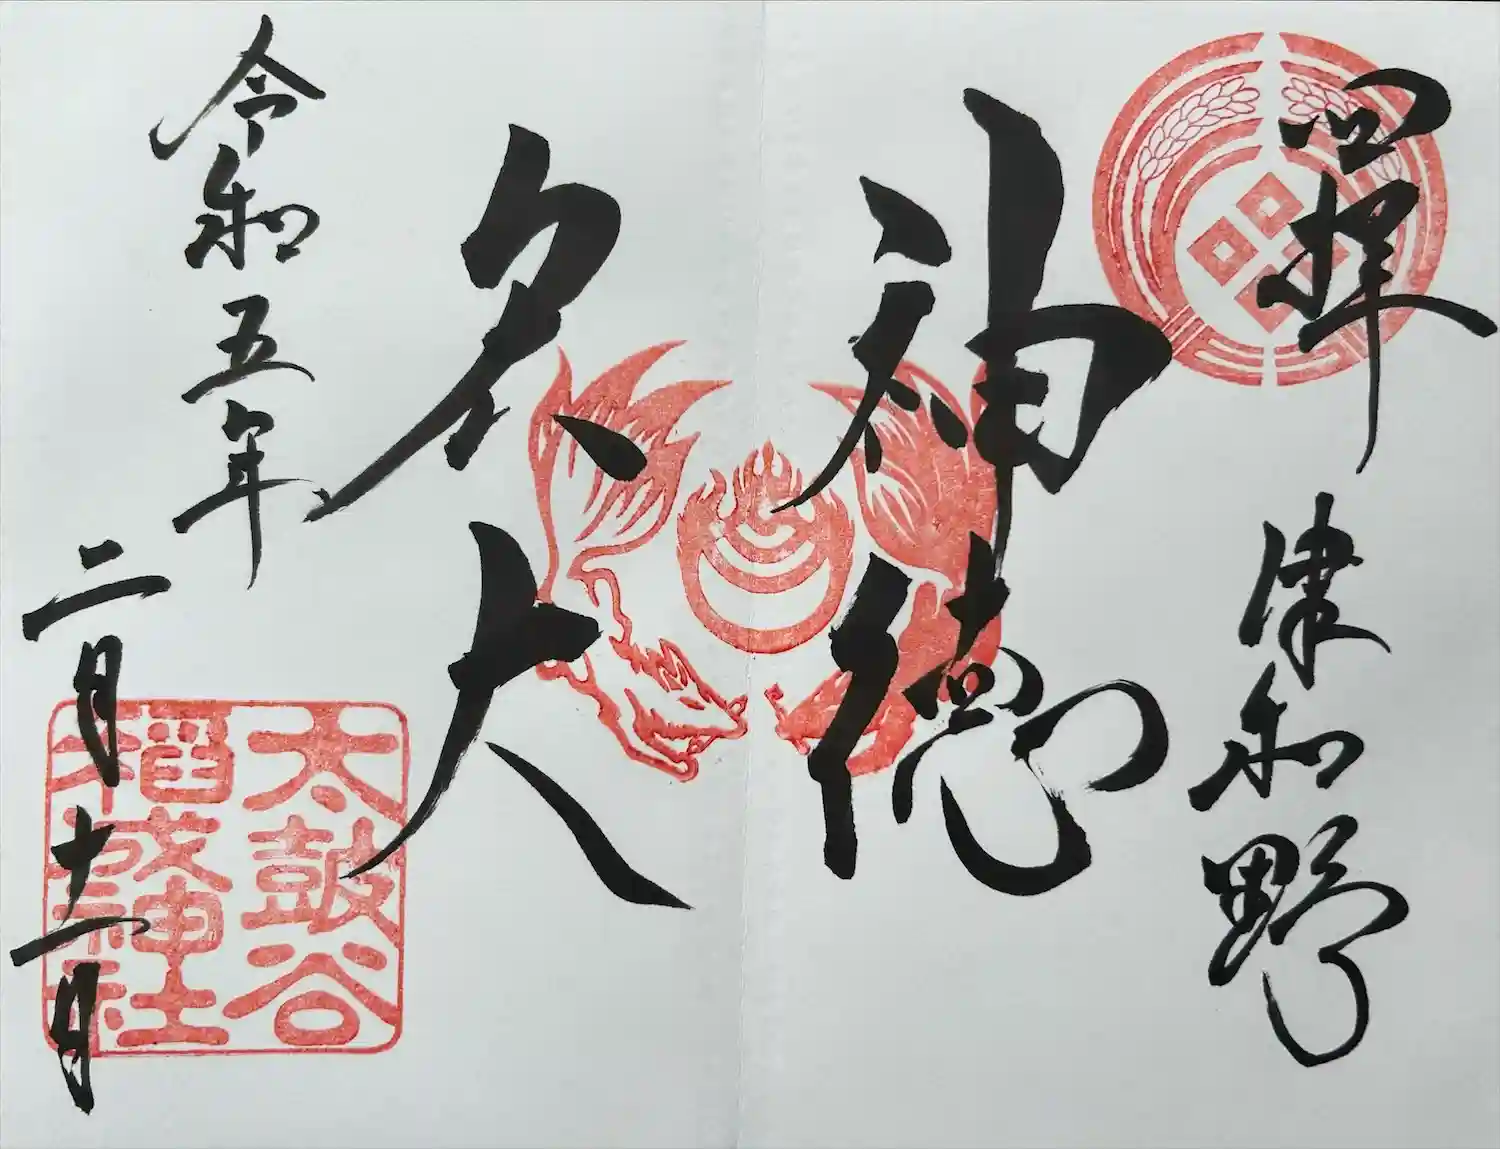 拝 津和野
神徳
大
令和五年
二月十一日
太鼓谷
稲成神社